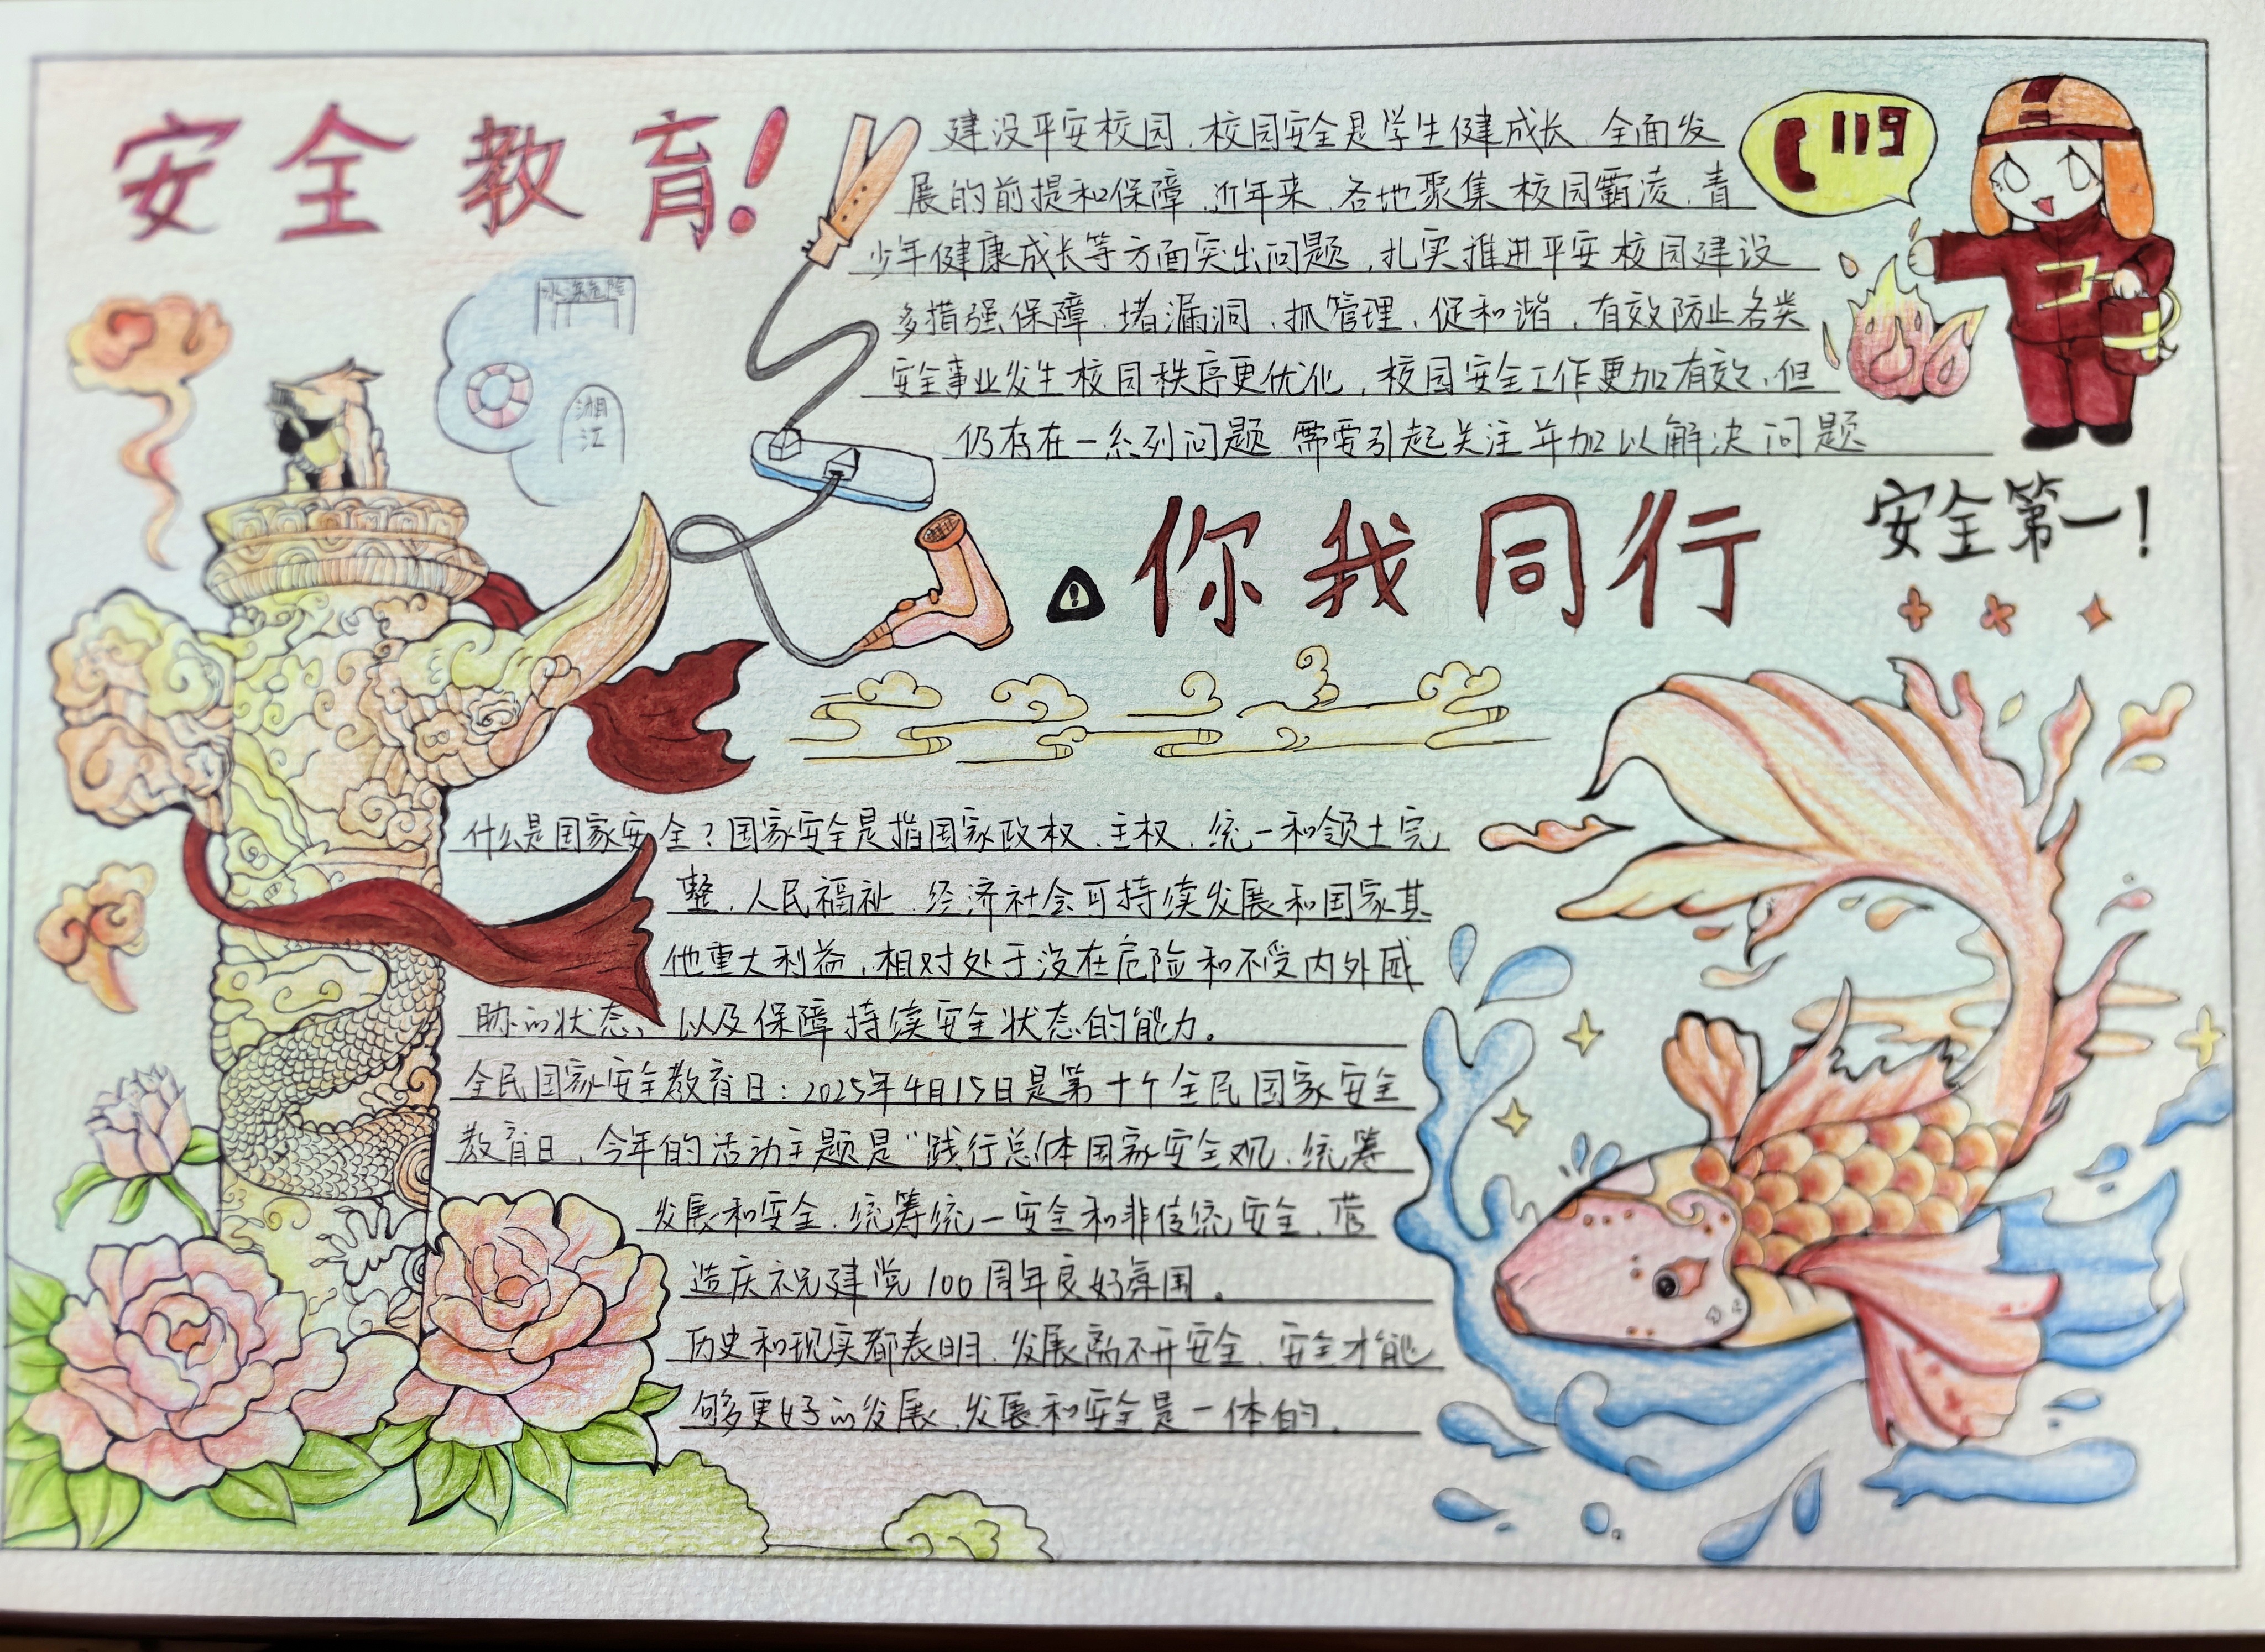 安全教育!
建设平安校园,校园安全是学生健成长、全面发
展的前提和保障,近年来,各地聚集校园霸凌,青
少年健康成长等方面突出问题,扎实推进平安校园建设
多措强保障、堵漏洞,抓管理,促和谐,有效防止各类
安全事业发生校园秩序更优化,校园安全工作更加有效,但
仍存在一系列问题 需要引起关注并加以解决问题
119
水深危险
湘
江
你我同行
安全第一!
什么是国家安全?国家安全是指国家政权、主权,统一和领土完
整、人民福祉、经济社会可持续发展和国家其
他重大利益,相对处于没在危险和不受内外威
胁的状态、以及保障持续安全状态的能力。
全民国家安全教育日:2025年4月15日是第十个全民国家安全
教育日,今年的活动主题是“践行总体国家安全观、统筹
发展和安全,统筹统一安全和非传统安全,营
造庆祝建党100周年良好氛围。
历史和现实都表明、发展离不开安全、安全才能
够更好的发展、发展和安全是一体的.